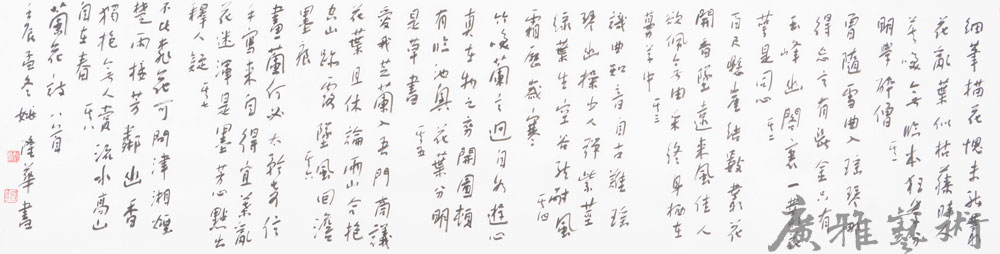 細筆描花愧未能
花亂葉似枯藤時人
臨本狂草分
明學醉僧 其一
曾隨雪曲入瑤琴哪
得忘言有斷金只有
玉峰幽閟裏一花一
葉是同心 其二
百尺懸崖結數叢花
開香墜遠來風佳人
欲佩無由采終身栖在
萬草中 其三
識曲知音自古難瑤
琴幽操少人彈紫莖
綠葉生空谷能耐風
霜歷歲寒 其四
蘭言迥自如遊心
真在物之旁開圖頓
有臨池興花葉分明
是草書 其五
愛我芝蘭入吾門商議
花葉且休論兩山合抱
墜風回澹
墨痕 其六
畫蘭何必太矜奇信
手寫來自得宜葉亂
花迷渾是墨芳心點出
釋人疑 其七
不比桃花可問津湘煙
楚雨極芳鄰幽香
獨抱無人賞流水高山
自在春 其八
蘭花詩八首
壬辰孟冬姚隆華書
廣雅藝術